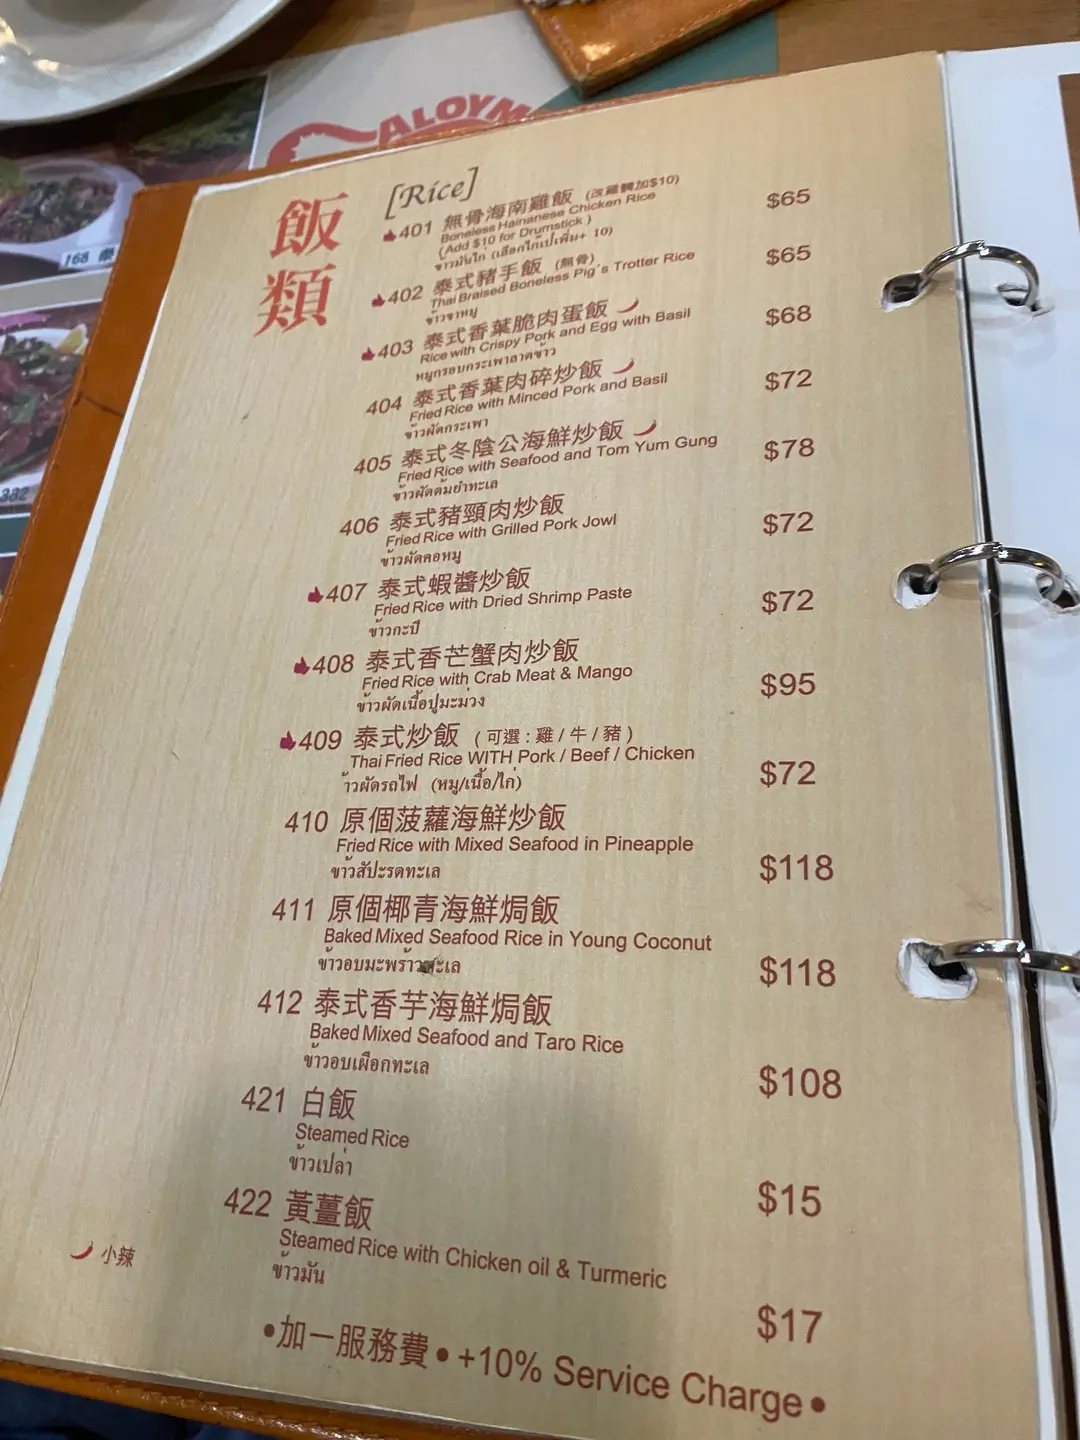 ALOYM
168
332
飯類
[Rice]
401 無骨海南雞飯 (改雞髀加$10) $65
Boneless Hainanese Chicken Rice
(Add $10 for Drumstick )
ข้าวมันไก่ (เลือกไก่เปเพิ่ม+ 10)
402 泰式豬手飯 (無骨) $65
Thai Braised Boneless Pig's Trotter Rice
ข้าวขาหมู
403 泰式香葉脆肉蛋飯 $68
Rice with Crispy Pork and Egg with Basil
หมูกรอบกระเพาลาดข้าว
404 泰式香葉肉碎炒飯 $72
Fried Rice with Minced Pork and Basil
ข้าวผัดกระเพา
405 泰式冬陰公海鮮炒飯 $78
Fried Rice with Seafood and Tom Yum Gung
ข้าวผัดต้มยำทะเล
406 泰式豬頸肉炒飯 $72
Fried Rice with Grilled Pork Jowl
ข้าวผัดคอหมู
407 泰式蝦醬炒飯 $72
Fried Rice with Dried Shrimp Paste
ข้าวกะปิ
408 泰式香芒蟹肉炒飯 $95
Fried Rice with Crab Meat & Mango
ข้าวผัดเนื้อปูมะม่วง
409 泰式炒飯 (可選 : 雞 / 牛 / 豬 ) $72
Thai Fried Rice WITH Pork / Beef / Chicken
้าวผัดรถไฟ (หมู/เนื้อ/ไก่)
410 原個菠蘿海鮮炒飯 $118
Fried Rice with Mixed Seafood in Pineapple
ข้าวสัปะรดทะเล
411 原個椰青海鮮焗飯 $118
Baked Mixed Seafood Rice in Young Coconut
ข้าวอบมะพร้าวทะเล
412 泰式香芋海鮮焗飯 $108
Baked Mixed Seafood and Taro Rice
ข้าวอบเผือกทะเล
421 白飯 $15
Steamed Rice
ข้าวเปล่า
422 黃薑飯 $17
Steamed Rice with Chicken oil & Turmeric
ข้าวมัน
小辣
•加一服務費• +10% Service Charge •